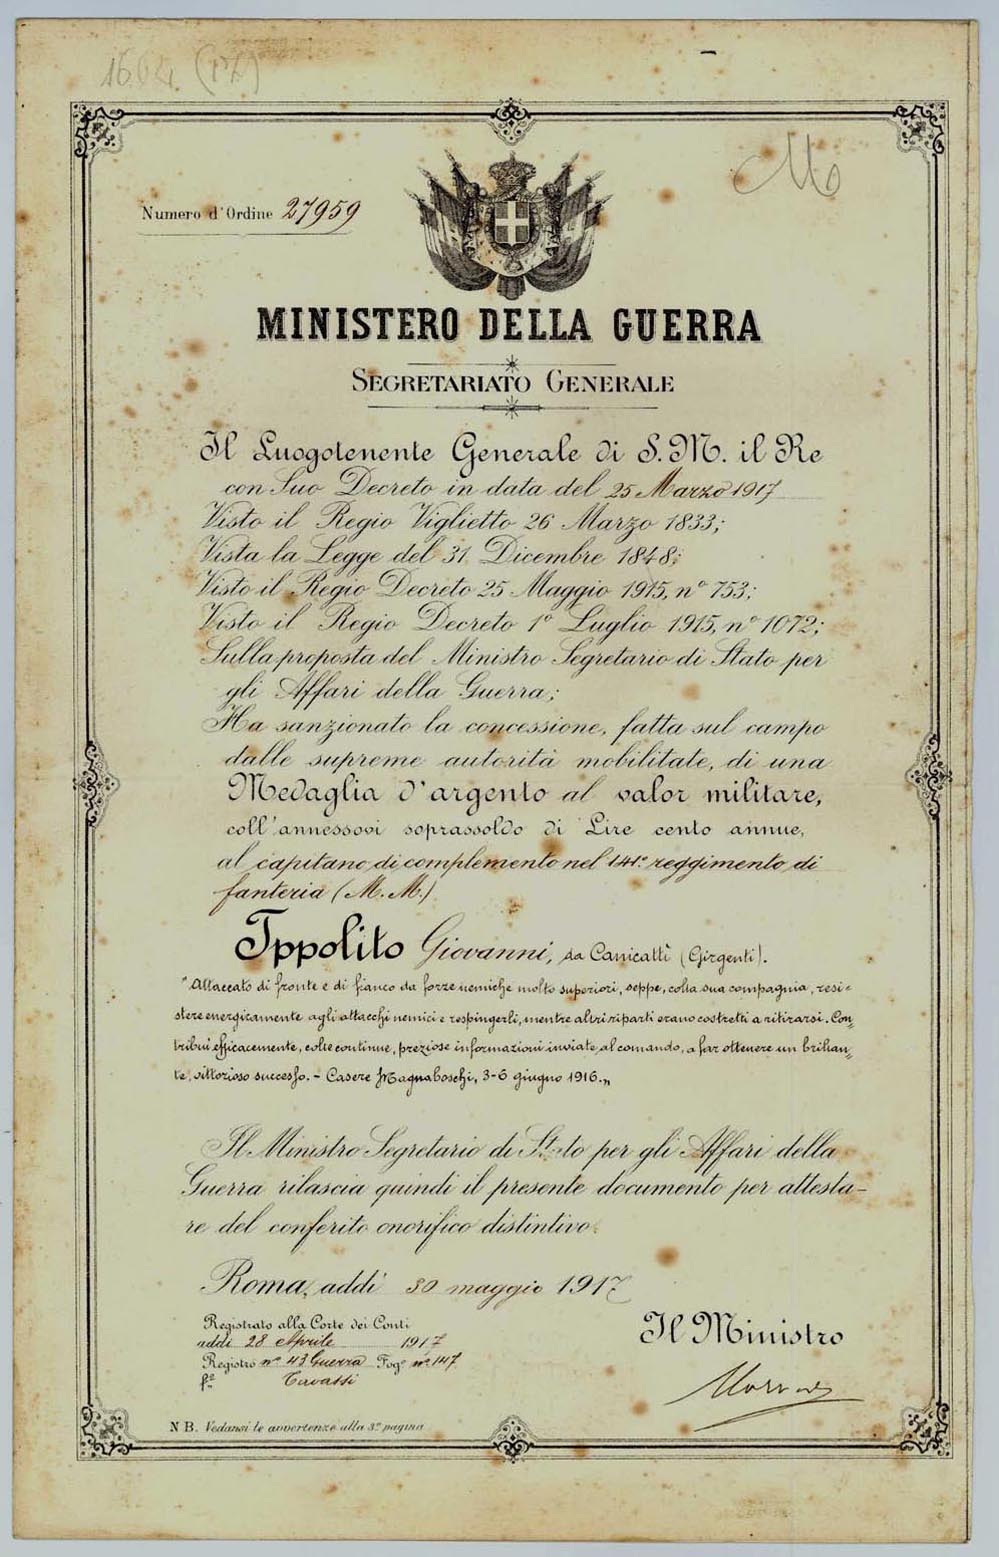 1664 (17)
Numero d'Ordine 27959
MINISTERO DELLA GUERRA
SEGRETARIATO GENERALE
Il Luogotenente Generale di S. M. il Re
con Suo Decreto in data del 25 Marzo 1917
Visto il Regio Viglietto 26 Marzo 1833;
Vista la Legge del 31 Dicembre 1848;
Visto il Regio Decreto 25 Maggio 1915, n° 753;
Visto il Regio Decreto 1° Luglio 1915, n° 1072;
Sulla proposta del Ministro Segretario di Stato per
gli Affari della Guerra;
Ha sanzionato la concessione, fatta sul campo
dalle supreme autorità mobilitate, di una
Medaglia d'argento al valor militare,
coll'annessovi soprassoldo di Lire cento annue,
al capitano di complemento nel 141° reggimento di
fanteria (M. M.)
Ippolito Giovanni, da Canicattì (Girgenti).
"Attaccato di fronte e di fianco da forze nemiche molto superiori, seppe, colla sua compagnia, resi=
stere energicamente agli attacchi nemici e respingerli, mentre altri riparti erano costretti a ritirarsi. Con=
tribuì efficacemente, colle continue, preziose informazioni inviate al comando, a far ottenere un brillan=
te, vittorioso successo. - Casere Magnaboschi, 3-6 giugno 1916."
Il Ministro Segretario di Stato per gli Affari della
Guerra rilascia quindi il presente documento per attesta-
re del conferito onorifico distintivo.
Roma, addì 30 maggio 1917
Registrato alla Corte dei Conti
addì 28 Aprile 1917
Registro n° 43 Guerra Fog° n° 147
f°
Il Ministro
N B. Vedansi le avvertenze alla 3ª pagina